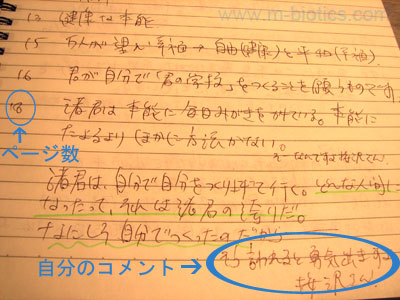 www.m-biotics.com
13 健康は本能
15 万人が望む幸福→自由(健康)と平和(幸福)
16 君が自分で「君の学校」をつくることを願うものです
18 諸君は本能に毎日みがきをかけている。本能に
たよるよりほかに方法がない。
ページ数
諸君は、自分で自分をつくり上げて行く。どんな人間に
なったって、それは諸君の誇りだ。
なにしろ自分でつくったのだから
自分のコメント→
そう言われると勇気出ます